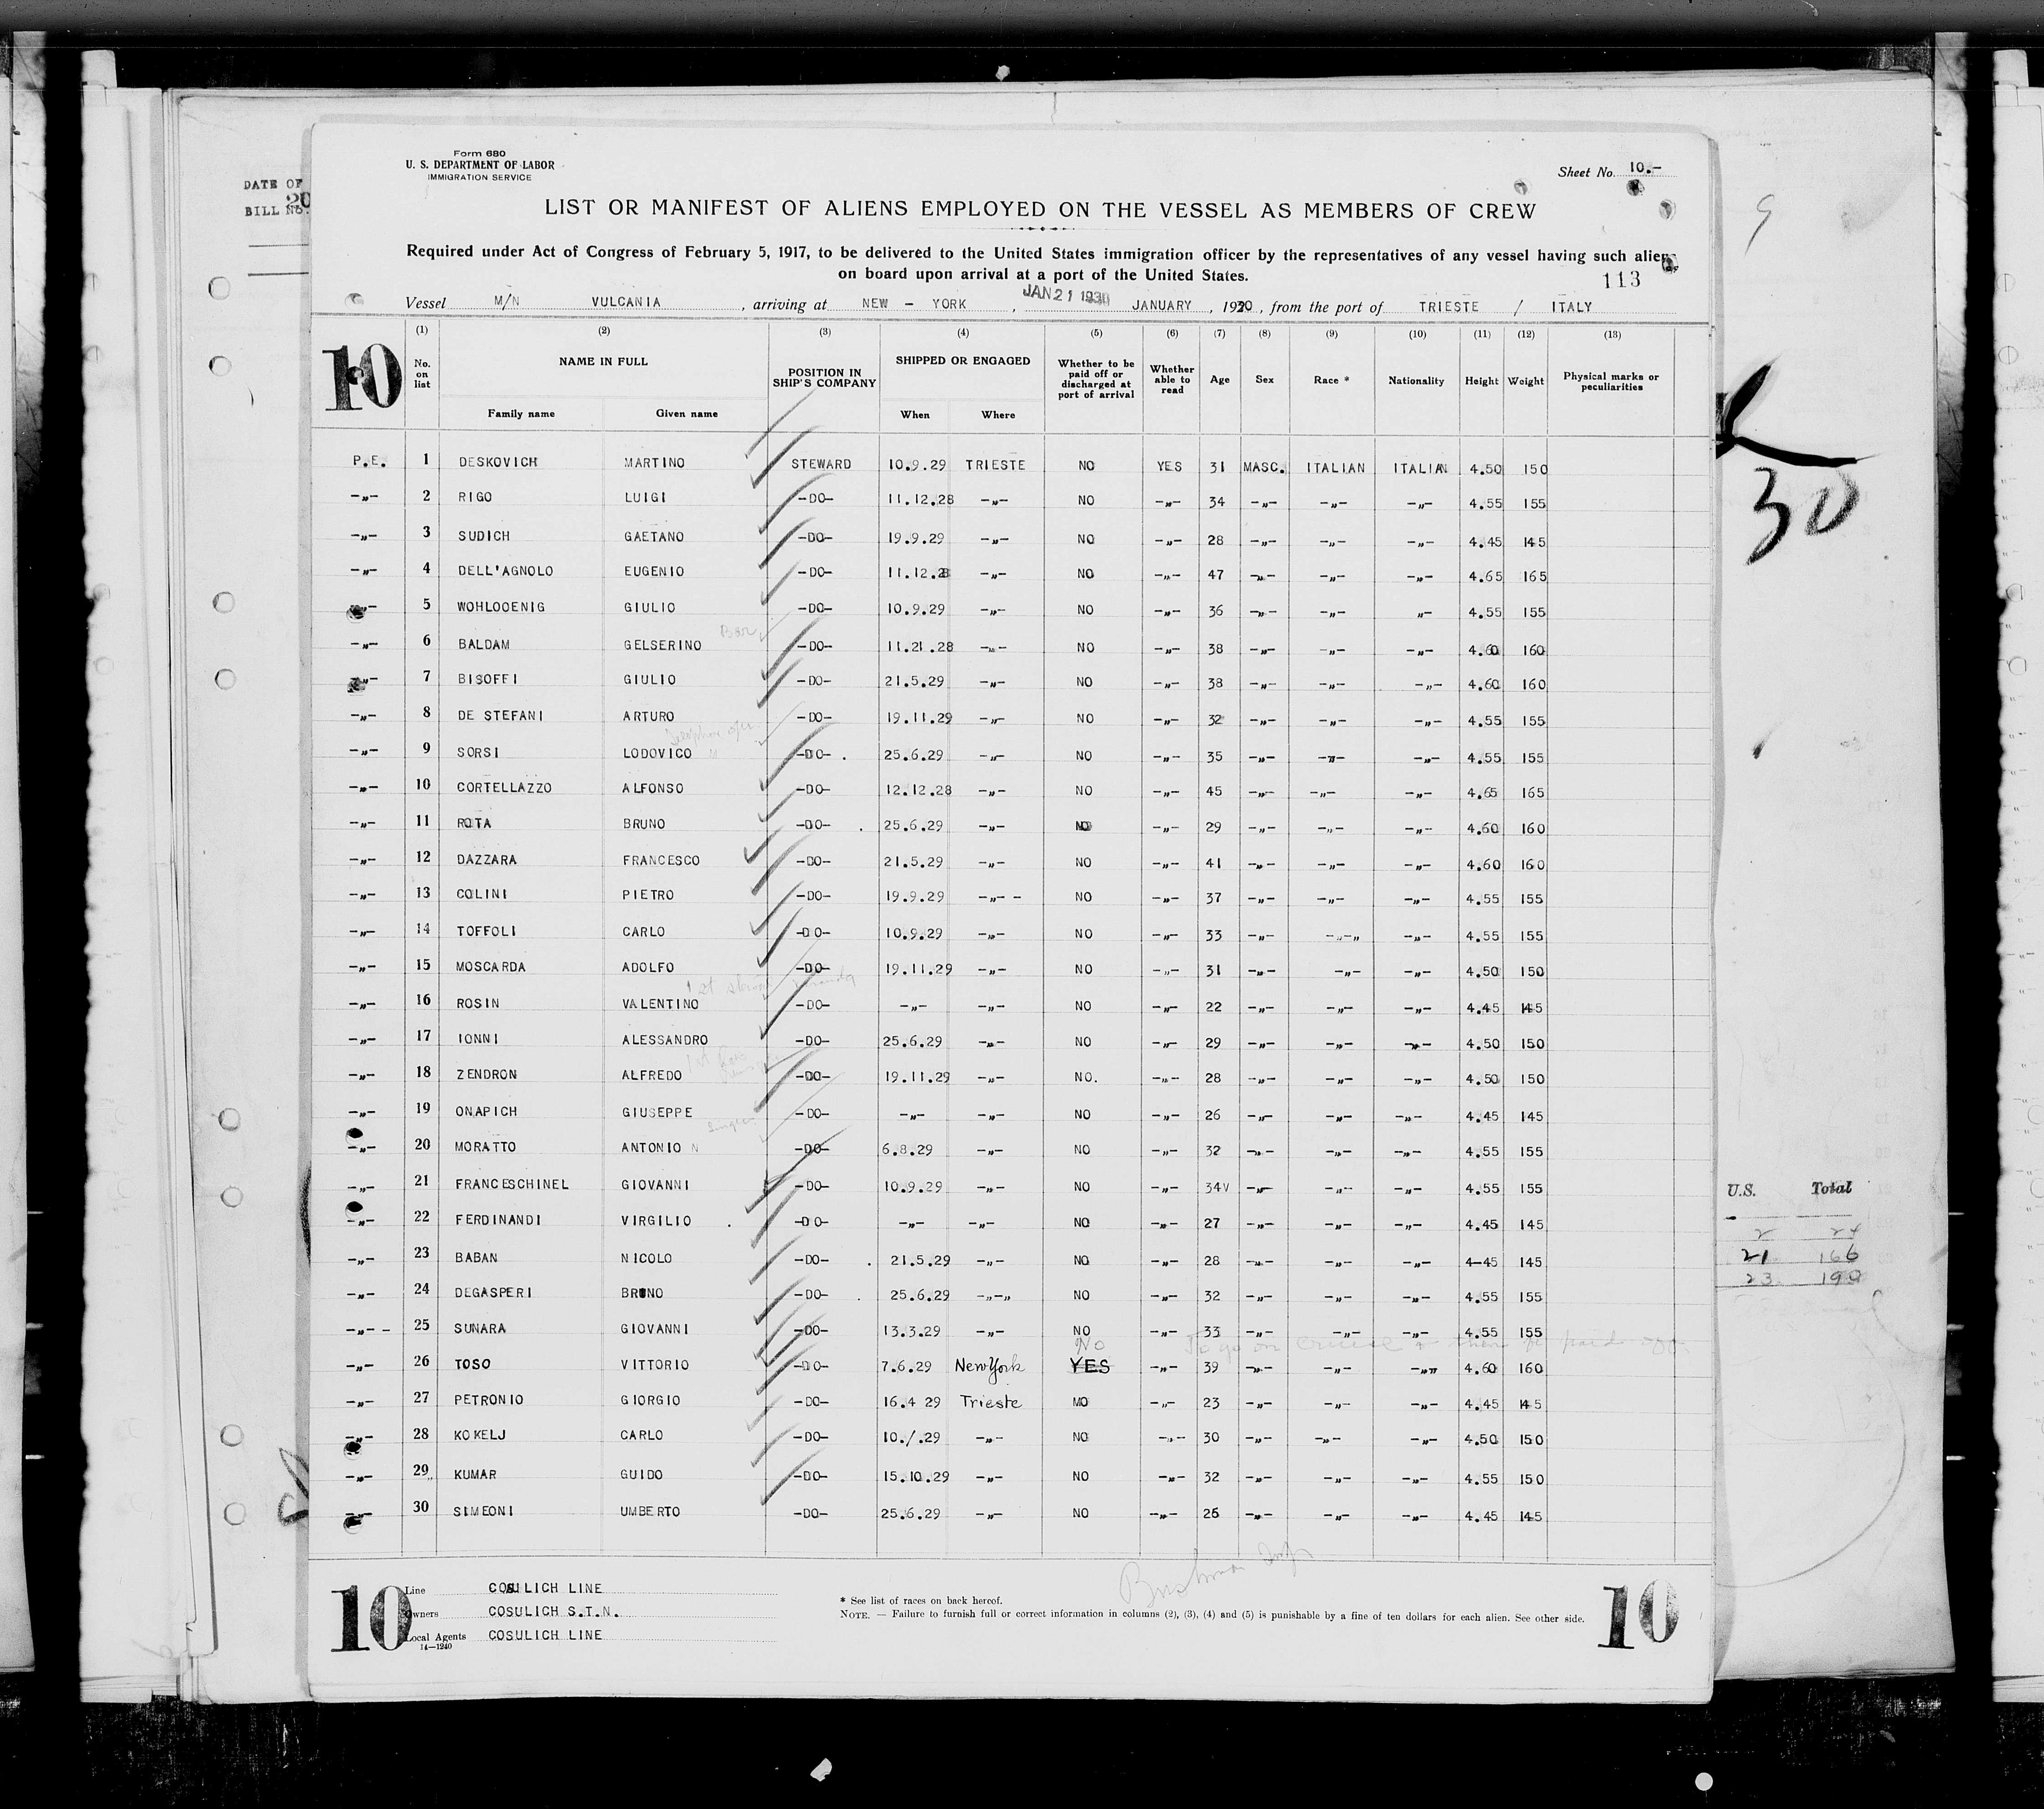 Form 680
U. S. DEPARTMENT OF LABOR
IMMIGRATION SERVICE
Sheet No. 10.-
DATE OF
BILL No. 20
LIST OR MANIFEST OF ALIENS EMPLOYED ON THE VESSEL AS MEMBERS OF CREW
Required under Act of Congress of February 5, 1917, to be delivered to the United States immigration officer by the representatives of any vessel having such aliens
on board upon arrival at a port of the United States.
113
Vessel M/N VULCANIA, arriving at NEW - YORK, JAN 21 1930 JANUARY, 1930, from the port of TRIESTE / ITALY
10
(1) (2) (3) (4) (5) (6) (7) (8) (9) (10) (11) (12) (13)
No. on list NAME IN FULL POSITION IN SHIP'S COMPANY SHIPPED OR ENGAGED Whether to be paid off or discharged at port of arrival Whether able to read Age Sex Race * Nationality Height Weight Physical marks or peculiarities
Family name Given name When Where
P.E. 1 DESKOVICH MARTINO STEWARD 10.9.29 TRIESTE NO YES 31 MASC. ITALIAN ITALIAN 4.50 150
-"- 2 RIGO LUIGI -DO- 11.12.28 -"- NO -"- 34 -"- -"- -"- 4.55 155
-"- 3 SUDICH GAETANO -DO- 19.9.29 -"- NO -"- 28 -"- -"- -"- 4.45 145
-"- 4 DELL'AGNOLO EUGENIO -DO- 11.12.28 -"- NO -"- 47 -"- -"- -"- 4.65 165
-"- 5 WOHLOOENIG GIULIO -DO- 10.9.29 -"- NO -"- 36 -"- -"- "- 4.55 155
Bar
-"- 6 BALDAM GELSERINO -DO- 11.21.28 -"- NO -"- 38 -"- -"- -"- 4.60 160
-"- 7 BISOFFI GIULIO -DO- 21.5.29 -"- NO -"- 38 -"- -"- -"- 4.60 160
-"- 8 DE STEFANI ARTURO -DO- 19.11.29 -"- NO -"- 32 -"- -"- -"- 4.55 155
-"- 9 SORSI LODOVICO -DO- . 25.6.29 -"- NO -"- 35 -"- -"- -"- 4.55 155
-"- 10 CORTELLAZZO ALFONSO -DO- 12.12.28 -"- NO -"- 45 -"- -"- -"- 4.65 165
-"- 11 ROTA BRUNO -DO- . 25.6.29 -"- NO -"- 29 -"- -"- -"- 4.60 160
-"- 12 DAZZARA FRANCESCO -DO- 21.5.29 -"- NO -"- 41 -"- -"- -"- 4.60 160
-"- 13 COLINI PIETRO -DO- 19.9.29 -"- - NO -"- 37 -"- -"- -"- 4.55 155
-"- 14 TOFFOLI CARLO -DO- 10.9.29 -"- NO -"- 33 -"- -"-" -"- 4.55 155
-"- 15 MOSCARDA ADOLFO -DO- 19.11.29 -"- NO -"- 31 -"- -"- -"- 4.50 150
-"- 16 ROSIN VALENTINO -DO- -"- -"- NO -"- 22 -"- -"- -"- 4.45 145
-"- 17 IONNI ALESSANDRO -DO- 25.6.29 -"- NO -"- 29 -"- -"- -"- 4.50 150
-"- 18 ZENDRON ALFREDO -DO- 19.11.29 -"- NO. -"- 28 -"- -"- -"- 4.50 150
-"- 19 ONAPICH GIUSEPPE -DO- -"- -"- NO -"- 26 -"- -"- -"- 4.45 145
-"- 20 MORATTO ANTONIO N -DO- 6.8.29 -"- NO -"- 32 -"- -"- -"- 4.55 155
-"- 21 FRANCESCHINEL GIOVANNI -DO- 10.9.29 -"- NO -"- 34v -"- -"- -"- 4.55 155
-"- 22 FERDINANDI VIRGILIO . -DO- -"- -"- NO -"- 27 -"- -"- -"- 4.45 145
-"- 23 BABAN NICOLO -DO- . 21.5.29 -"- NO -"- 28 -"- -"- -"- 4-45 145
-"- 24 DEGASPERI BRUNO -DO- . 25.6.29 -"-" NO -"- 32 -"- -"- -"- 4.55 155
-"- - 25 SUNARA GIOVANNI -DO- 13.3.29 -"- NO -"- 33 -"- -"- -"- 4.55 155
No To go on cruise & then be paid off
-"- 26 TOSO VITTORIO -DO- 7.6.29 New York YES -"- 39 -"- -"- -"" 4.60 160
-"- 27 PETRONIO GIORGIO -DO- 16.4 29 Trieste NO -"- 23 -"- -"- -"- 4.45 145
-"- 28 KOKELJ CARLO -DO- 10./.29 -"- NO -"- 30 -"- -"- -"- 4.50 150
-"- 29 KUMAR GUIDO -DO- 15.10.29 -"- NO -"- 32 -"- -"- -"- 4.55 150
-"- 30 SIMEONI UMBERTO -DO- 25.6.29 -"- NO -"- 26 -"- -"- -"- 4.45 145
10
Line COSULICH LINE
Owners COSULICH S.T.N.
Local Agents COSULICH LINE
14—1240
* See list of races on back hereof.
NOTE. — Failure to furnish full or correct information in columns (2), (3), (4) and (5) is punishable by a fine of ten dollars for each alien. See other side.
10
9
30
U.S. Total
2 24
21 166
23 190